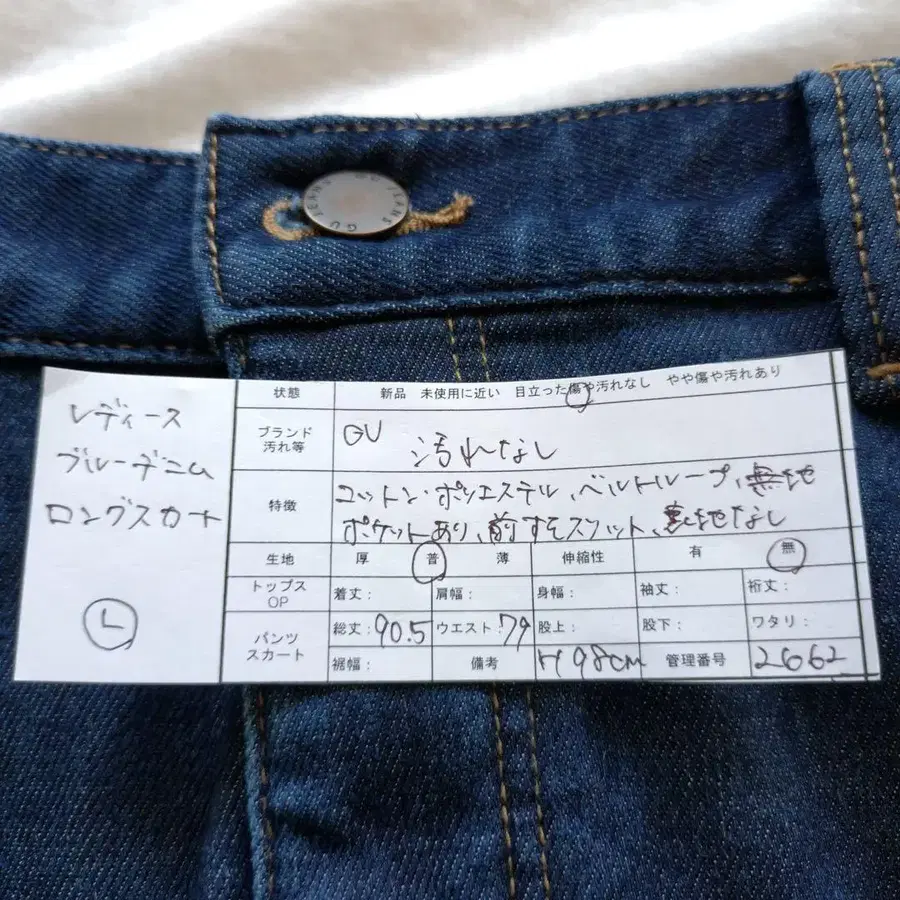 GU JEANS GU JEANS
レディース
ブルーデニム
ロングスカート
L
状態 新品 未使用に近い 目立った傷や汚れなし やや傷や汚れあり
ブランド GU
汚れ等 汚れなし
特徴 コットン・ポリエステル、ベルトループ、無地
ポケットあり、前すそスリット、裏地なし
生地 厚 普 薄 伸縮性 有 無
トップス OP 着丈: 肩幅: 身幅: 袖丈: 裄丈:
パンツ スカート 総丈:90.5 ウエスト:79 股上: 股下: ワタリ:
裾幅: 備考 H98cm 管理番号 2662